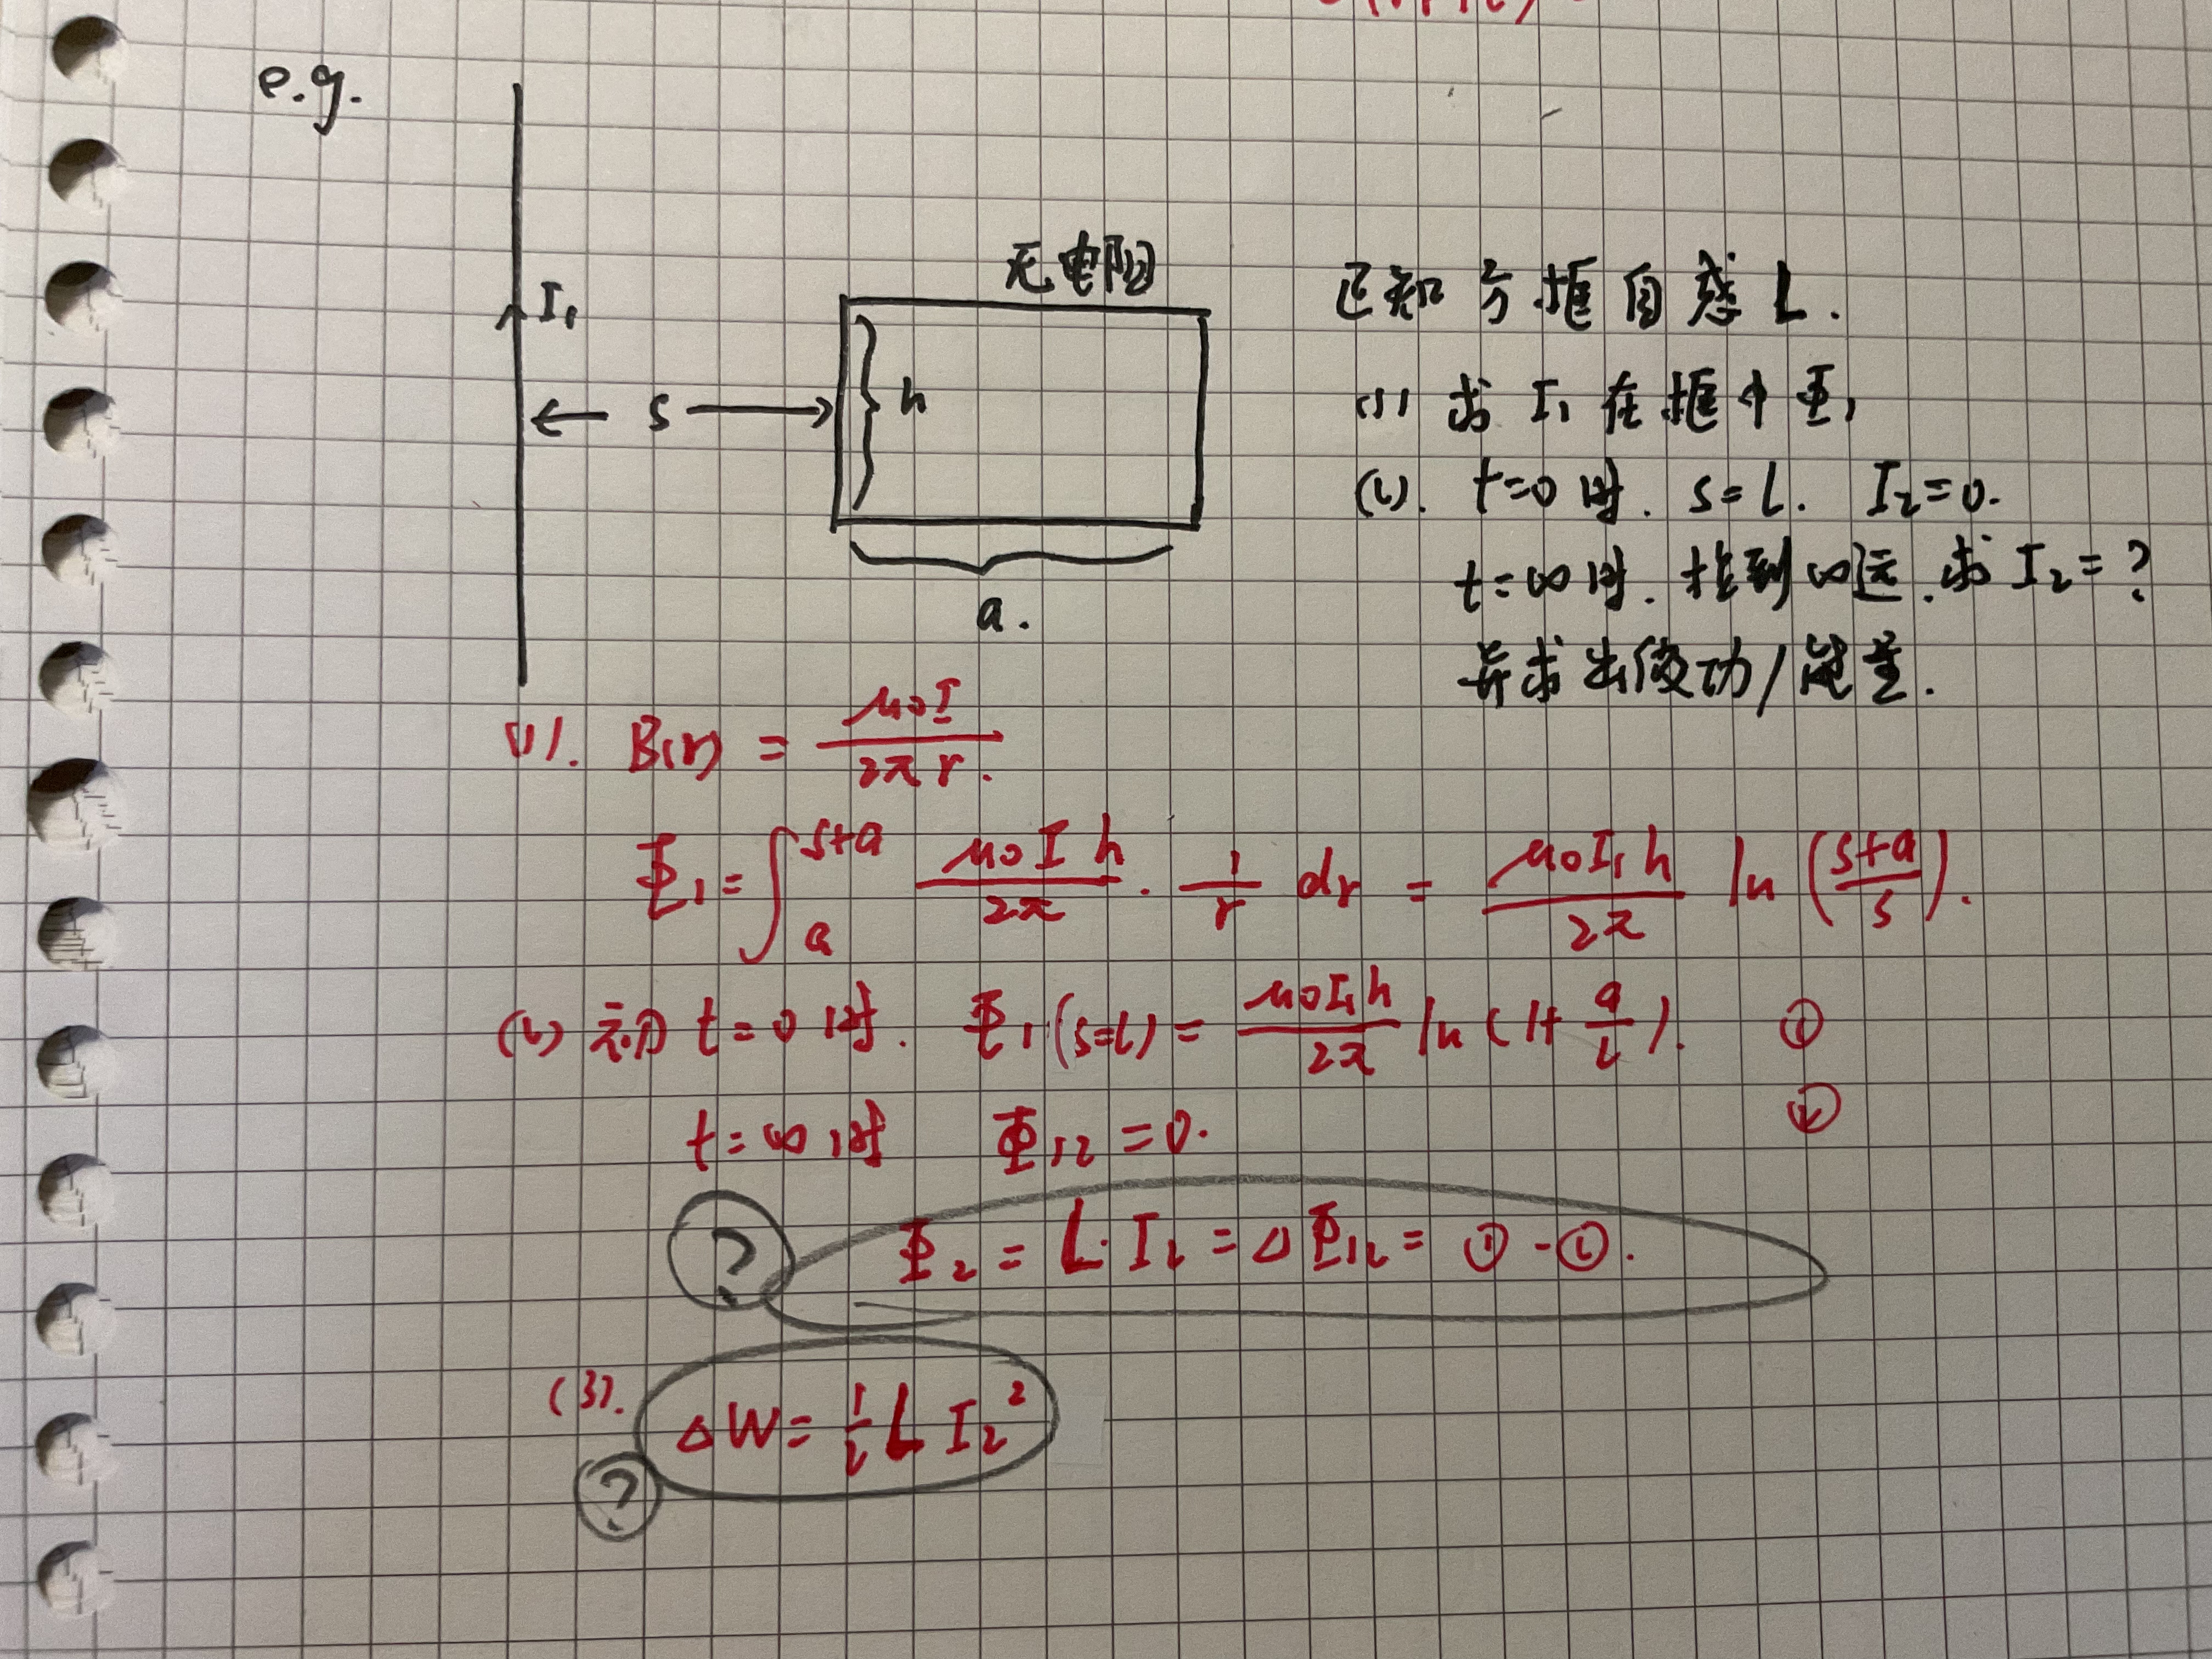 e.g.
无电阻
I₁
s
h
a.
已知方框自感 L.
(1) 求 I₁ 在框中 Φ₁
(2). t=0时. s=l. I₂=0.
t=∞时. 推到∞远. 求 I₂=?
并求出做功/能量.
(1). B(r) = μ₀I / 2πr.
Φ₁ = ∫ₐˢ⁺ᵃ μ₀Ih/2π · 1/r dr = μ₀I₁h/2π ln((s+a)/s).
(2) 初 t=0时. Φ₁(s=l) = μ₀I₁h/2π ln(1+a/l). ①
t=∞时 Φ₁₂=0. ②
? Φ₂ = L·I₂ = ΔΦ₁₂ = ①-②.
(3). ΔW = ½ L I₂²
?